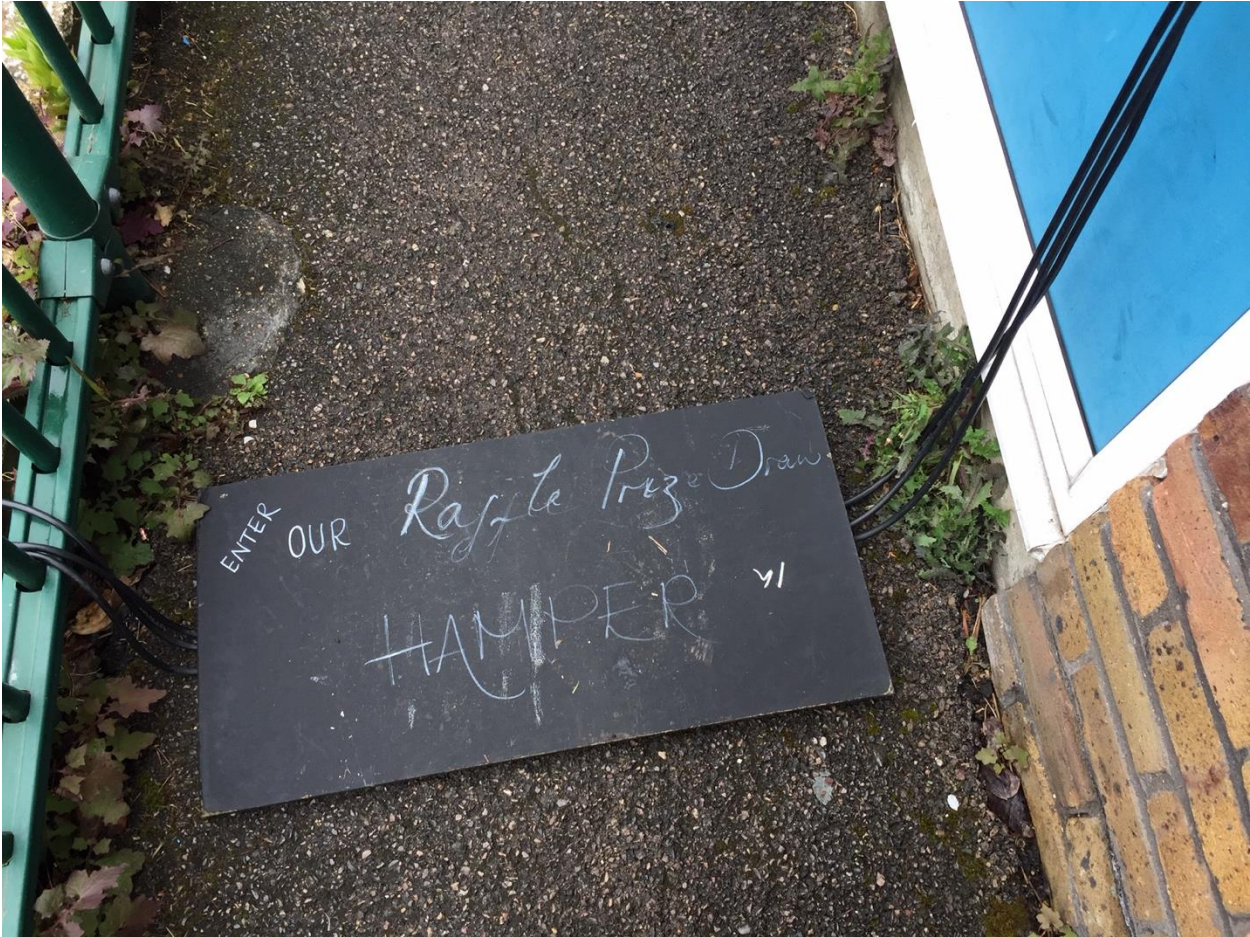 ENTER OUR Raffle Prize Draw
HAMPER